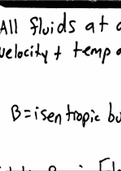 All fluids at a
velocity + temp a
B = isentropic bu